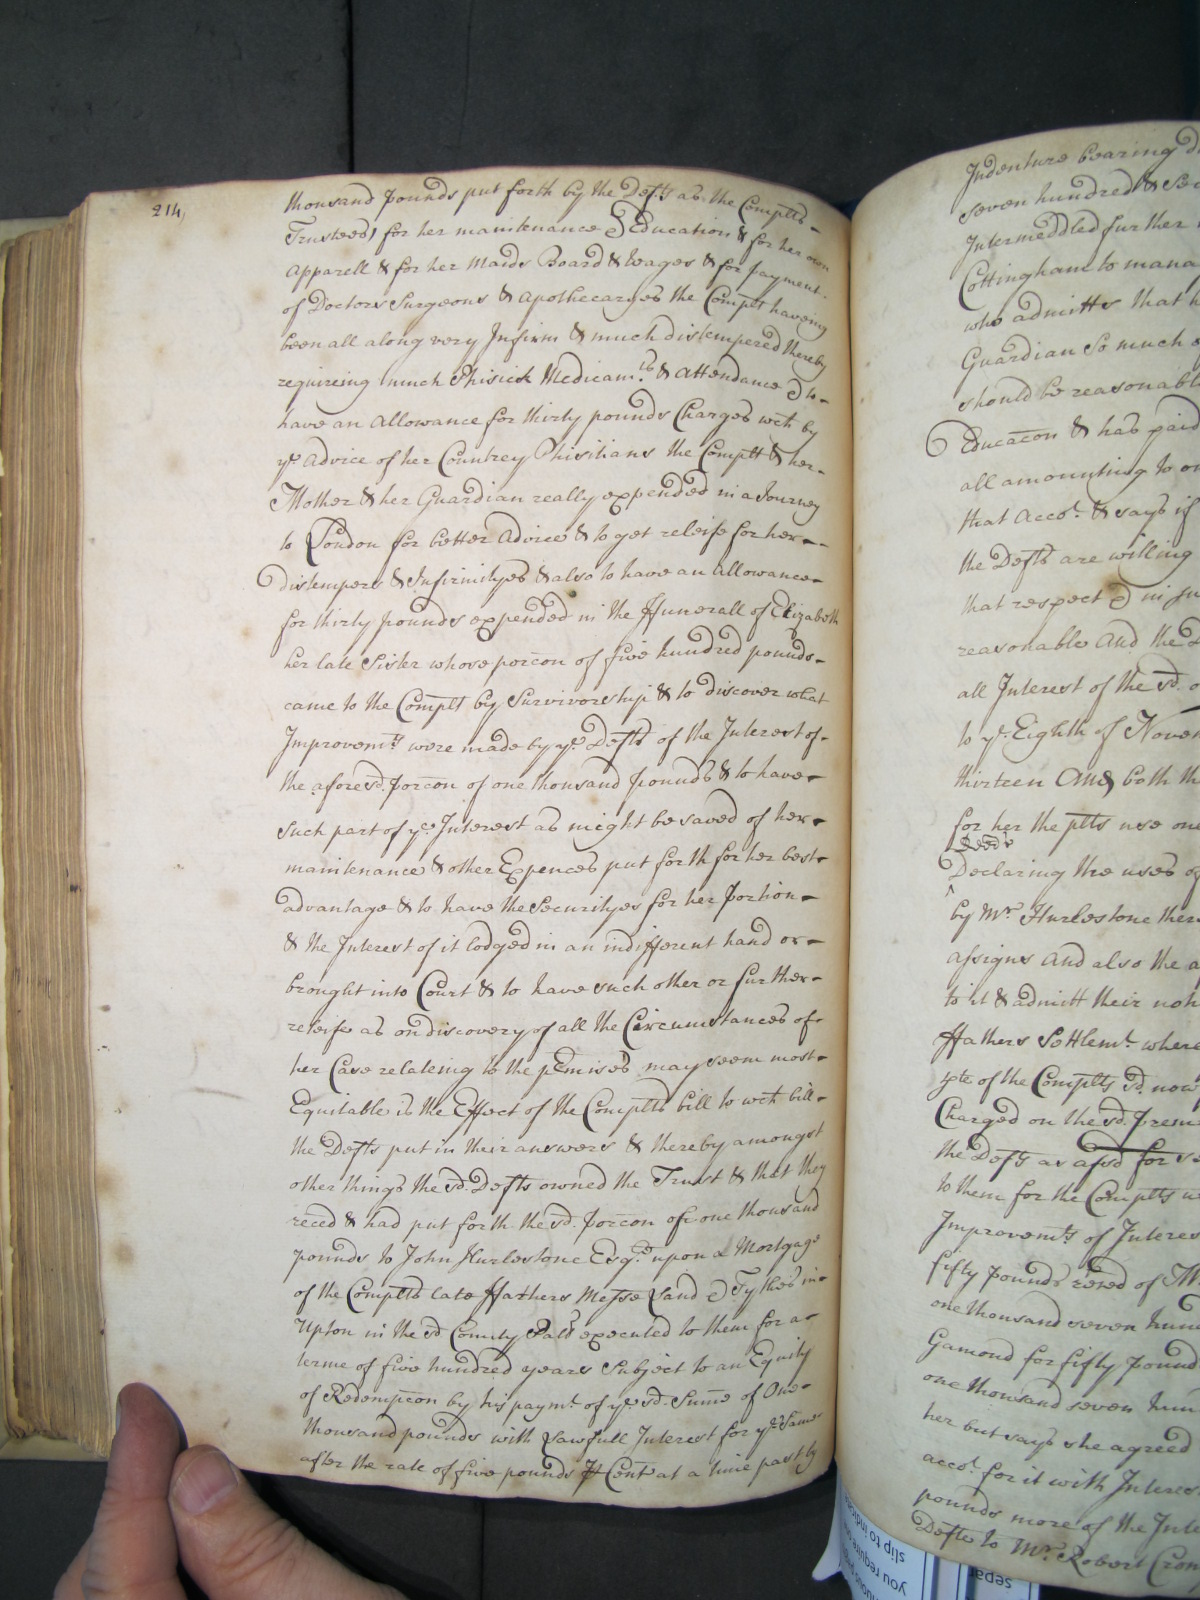 214,
thousand pounds put forth by the Defts as the Complts
Trustees for her maintenance & Education & for her own
Apparell & for her Maids Board & Wages & for payment
of Doctors Surgeons & Apothecaryes the Complt haveing
been all along very Infirm & much distempered thereby
requireing much Phisick Medicamts & Attendance & to
have an Allowance for thirty pounds Charges wch by
ye Advice of her Countrey Phisitians the Complt & her
Mother & her Guardian really expended in a Journey
to London for better Advice & to get releife for her
Distempers & Infirmityes & also to have an Allowance
for thirty pounds expended in the Ffunerall of Elizabeth
her late Sister whose porcon of five hundred pounds
came to the Complt by Survivorship & to discover what
Improvemts were made by ye Defts of the Interest of
the aforesd porcon of one thousand pounds & to have
such part of ye Interest as might be saved of her
maintenance & other Expences put forth for her best
advantage & to have the Securityes for her Portion
& the Interest of it lodged in an indifferent hand or
brought into Court & to have such other or further
releife as on discovery of all the Circumstances of
her Case relateing to the pEmises may seem most
Equitable is the Effect of the Complts bill to wch bill
the Defts put in their answers & thereby amongst
other things the sd Defts owned the Trust & that they
reced & had put forth the sd porcon of one thousand
pounds to John Hurlestone Esqr upon a Mortgage
of the Complts late Ffathers Messe Land & Tythes in
Upton in the sd County Palt executed to them for a
terme of five hundred years Subject to an Equity
of Redempcon by his paymt of ye sd Sume of One
thousand pounds with Lawfull Interest for ye Same
after the rate of five pounds p Cent at a time past by
Indenture bearing
seven hundred &
Intermeddled further
Cottingham to mana
who admitts that h
Guardian So much
should be reasonabl
Educacon & has paid
all amounting to
that Accot & says if
the Defts are willing
that respect & in
reasonable And the
all Interest of the sd
to ye Eighth of Novem
thirteen And both th
for her the plts use one
Deeds
Declaring the uses of
by Mr Hurlestone ther
assigns And also the
to it & admitt their
Ffathers Settlemt where
pte of the Complts sd now
Charged on the sd prem
the Defts as afsd for
to them for the Complts
Improvemts of Interes
fifty pounds reced of
one thousand seven hun
Gamond for fifty pound
one thousand seven hun
her but says she agreed
accot for it with Interes
pounds more of the Inte
Defts to Mr Robert Crom
slip to indica
you require
sepa